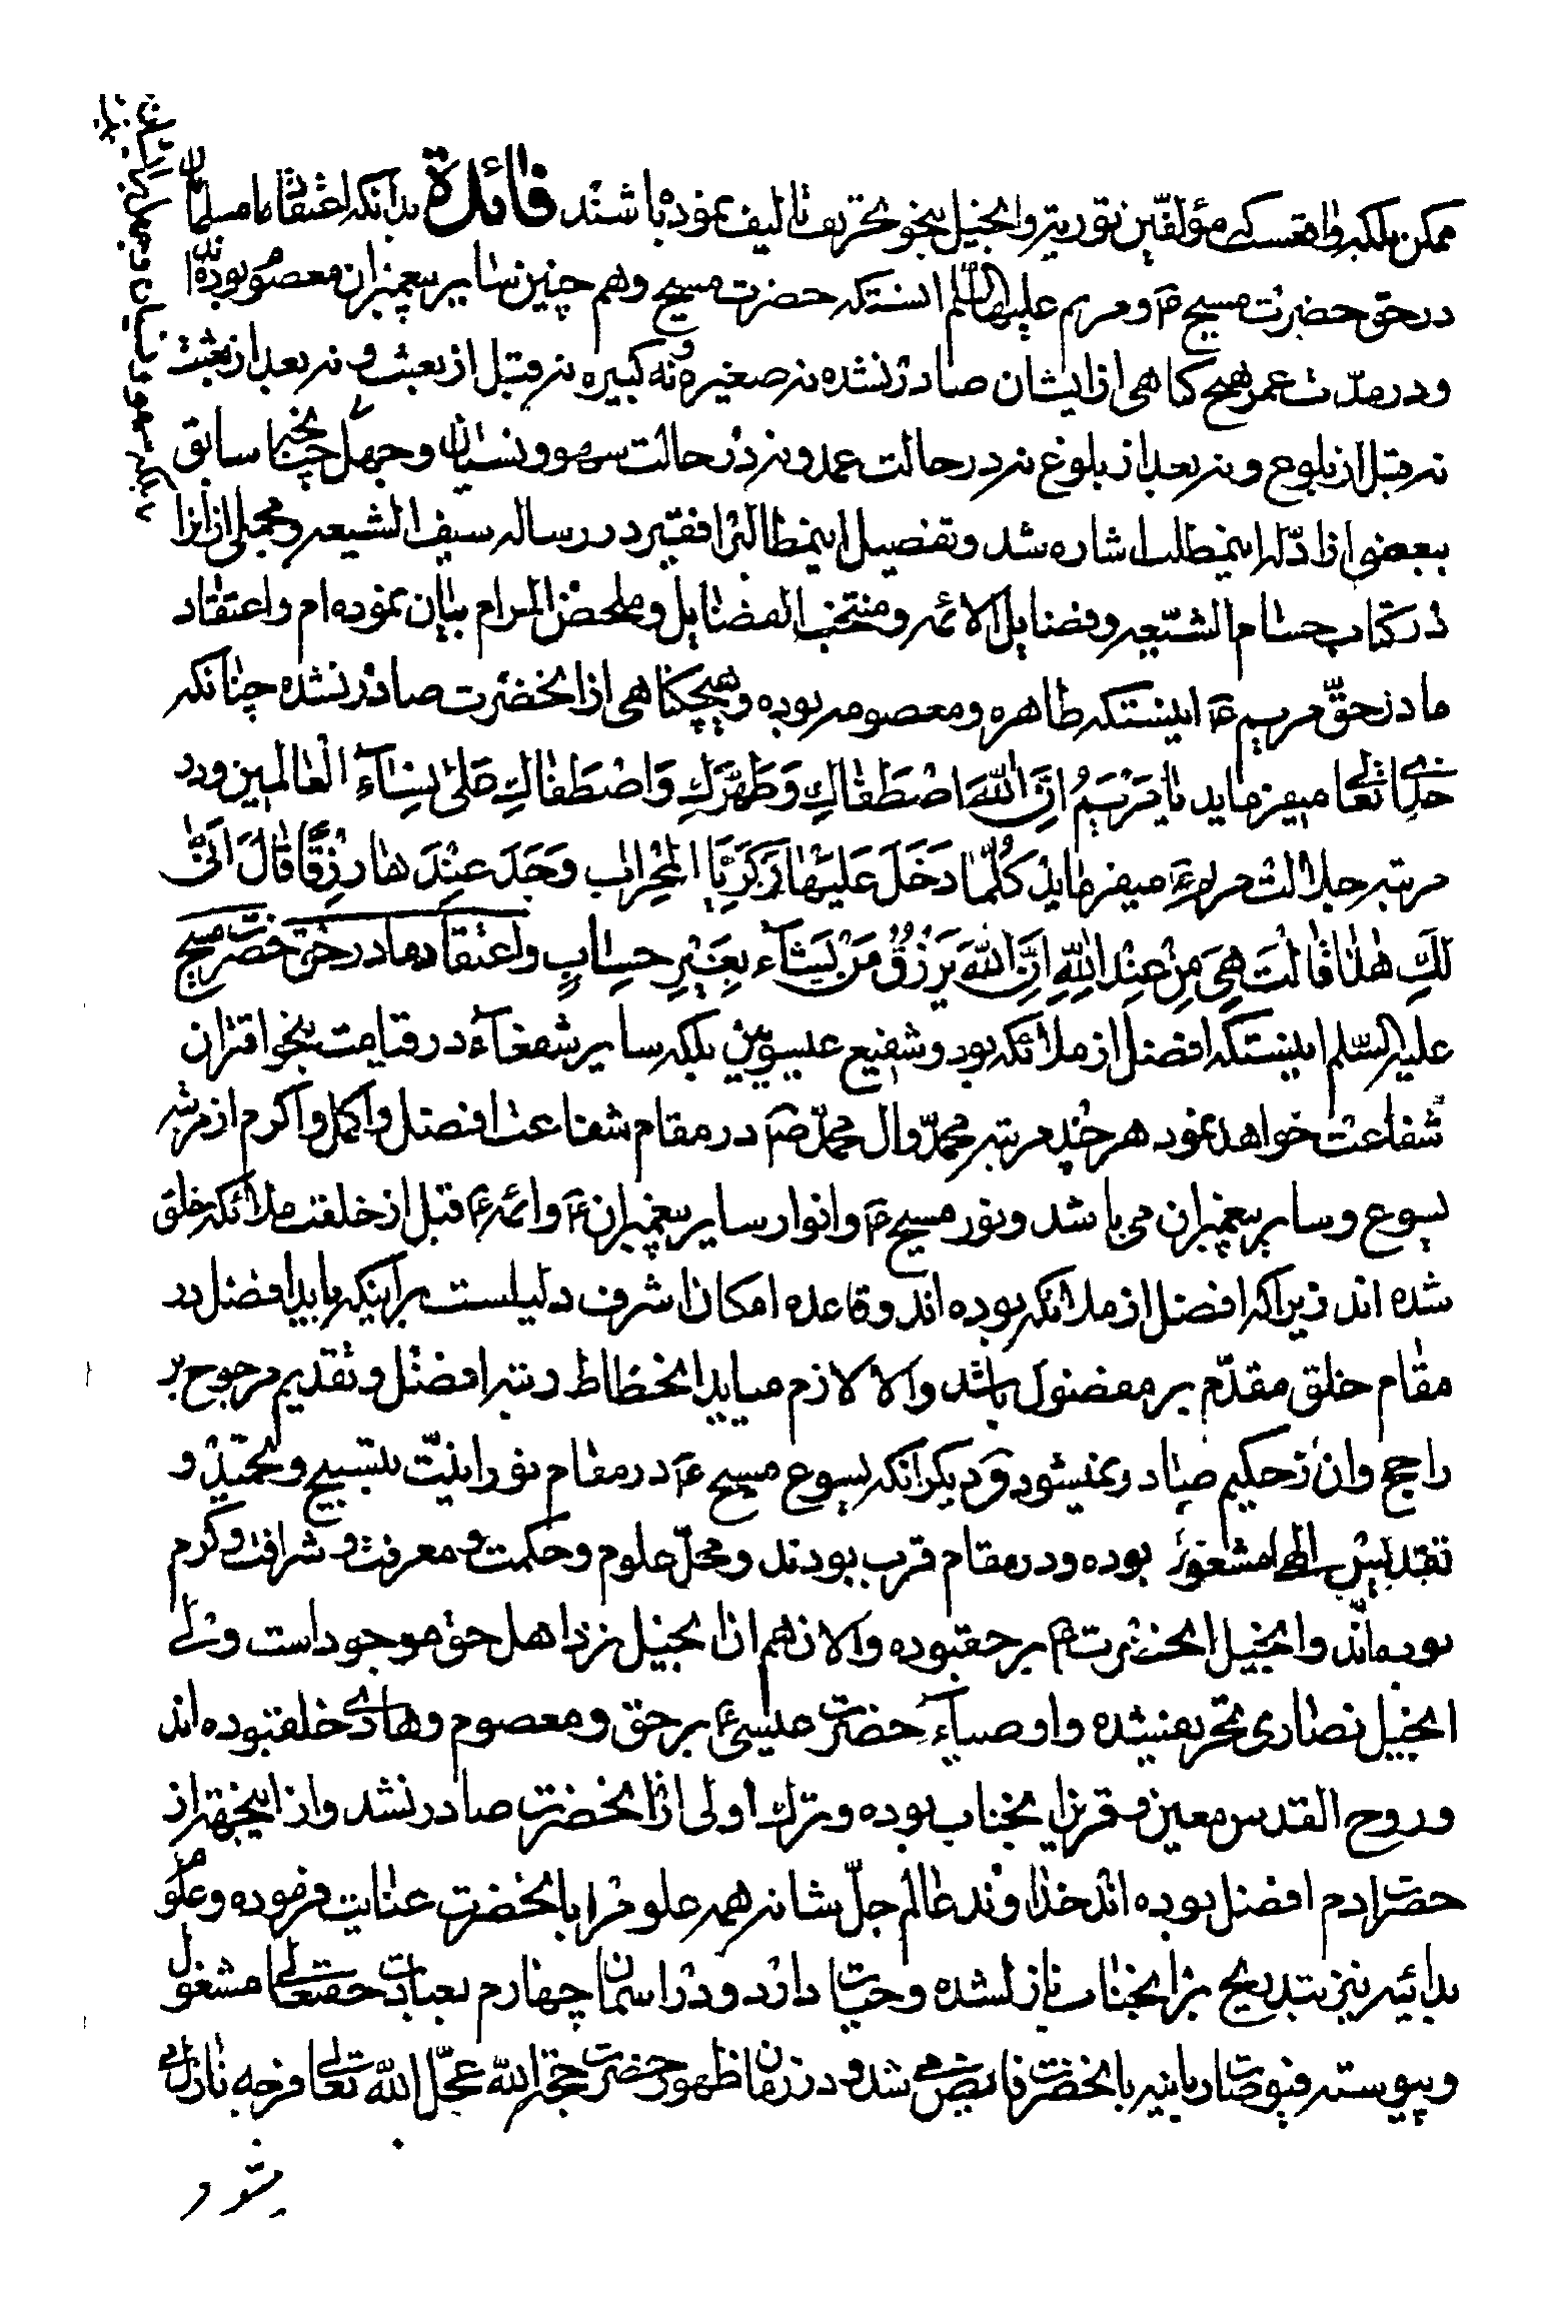 ممکن بلکه واقعست که مؤلفین توریة و انجیل بنحو تحریف تالیف نموده باشند فائدة بدانکه اعتقاد ما مسلمانان
در حق حضرت مسیح ع و مریم علیهاالسلم اینستکه حضرت مسیح و هم چنین سایر پیغمبران معصوم بوده‌اند
و در مدّت عمر هیچ کناهی از ایشان صادر نشده نه صغیره و نه کبیره نه قبل از بعثت و نه بعد از بعثت
نه قبل از بلوغ و نه بعد از بلوغ نه در حالت عمد و نه در حالت سهو و نسیان و جهل چنانچه سابق
ببعضی از ادّله اینمطلب اشاره شد و تفصیل اینمطالبرا فقیر در رساله سیف الشیعه و مجملی از انرا
در کتاب حسام الشیعه و فضایل الائمه و منتخب الفضایل و ملخص المرام بیان نموده ام و اعتقاد
ما در حقّ مریم ع اینستکه طاهره و معصومه بوده و هیچکناهی از انحضرت صادر نشده چنانکه
خدای تعالی میفرماید یا مَرْیَمُ اِنَّ اللّهَ اصْطَفاكِ وَطَهَّرَكِ وَاصْطَفاكِ عَلیٰ نِسآءِ الْعالَمینَ و در
مرتبه جلالت مریم ع میفرماید کُلَّما دَخَلَ عَلَیْها زَکَرِیَّا الْمِحْرابَ وَجَدَ عِنْدَها رِزْقًا قالَ اَنّیٰ
لَكِ هٰذا قالَتْ هِیَ مِنْ عِنْدِ اللّهِ اِنَّ اللّهَ یَرْزُقُ مَنْ یَشآء بِغَیْرِ حِسابٍ و اعتقاد ما در حق حضرت مسیح
علیه السّلم اینستکه افضل از ملائکه بود و شفیع عیسویین بلکه سایر شفعآء در قیامت بنحو اقتران
شفاعت خواهد نمود هر چند مرتبه محمدّ و ال محمدّ ص در مقام شفاعت افضل و اکمل و اکرم از مرتبه
یسوع و سایر پیغمبران می باشد و نور مسیح ع و انوار سایر پیغمبران ع و ائمه ع قبل از خلقت ملائکه خلق
شده اند زیراکه افضل از ملائکه بوده اند و قاعده امکان اشرف دلیلست بر اینکه باید افضل در
مقام خلق مقدّم بر مفضول باشد و الا لازم میاید انحطاط رتبه افضل و تقدیم مرجوح بر
راجح و ان از حکیم صادر نمیشود و دیکر انکه یسوع مسیح ع در مقام نورانیّت بتسبیح و تحمید و
تقدیس الهی مشغول بوده و در مقام قرب بودند و محلّ علوم و حکمت و معرفت و شرافت و کرم
بوده‌اند و انجیل انحضرت ع بر حقبوده و الان هم ان انجیل نزد اهل حق موجود است ولی
انجیل نصاری تحریفشده و اوصیآء حضرت عیسی ع بر حق و معصوم و هادی خلقبوده اند
و روح القدس معین و قرین انجناب بوده و ترك اولی از انحضرت صادر نشد و از اینجهة از
حضرت ادم افضل بوده اند خداوند عالم جلّ شانه همه علوم را بانحضرت عنایت فرموده و علوم
بدائیه نیز بتدریج بر انجناب نازلشده و حیات دارد و در اسمان چهارم بعبادت حقتعالی مشغول
و پیوسته فیوضات ربانیه بانحضرت فایض می شد و در زمان ظهور حضرت حجة اللّه عجّل اللّه تعالی فرجه نازل می
بلکه سهو و نسیان و جهل